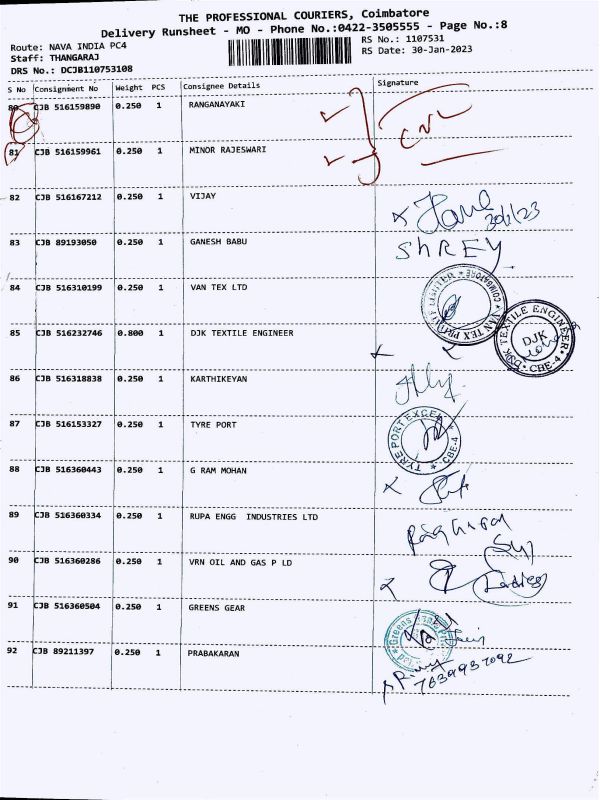 THE PROFESSIONAL COURIERS, Coimbatore
Delivery Runsheet - MO - Phone No.:0422-3505555 - Page No.:8
Route: NAVA INDIA PC4
RS No.: 1107531
Staff: THANGARAJ
RS Date: 30-Jan-2023
DRS No.: DCJB110753108
S No Consignment No Weight PCS Consignee Details Signature
80 CJB 516159890 0.250 1 RANGANAYAKI
81 CJB 516159961 0.250 1 MINOR RAJESWARI
82 CJB 516167212 0.250 1 VIJAY
30/1/23
83 CJB 89193050 0.250 1 GANESH BABU SHREY
84 CJB 516310199 0.250 1 VAN TEX LTD
VAN TEX PRIVATE LIMITED COIMBATORE
85 CJB 516232746 0.800 1 DJK TEXTILE ENGINEER
DJK TEXTILE ENGINEER CBE-4
DJK
86 CJB 516318838 0.250 1 KARTHIKEYAN
87 CJB 516153327 0.250 1 TYRE PORT
TYRE PORT EXCEL CBE-4
88 CJB 516360443 0.250 1 G RAM MOHAN
89 CJB 516360334 0.250 1 RUPA ENGG INDUSTRIES LTD
90 CJB 516360286 0.250 1 VRN OIL AND GAS P LD
91 CJB 516360504 0.250 1 GREENS GEAR
Greens
92 CJB 89211397 0.250 1 PRABAKARAN
7639937092